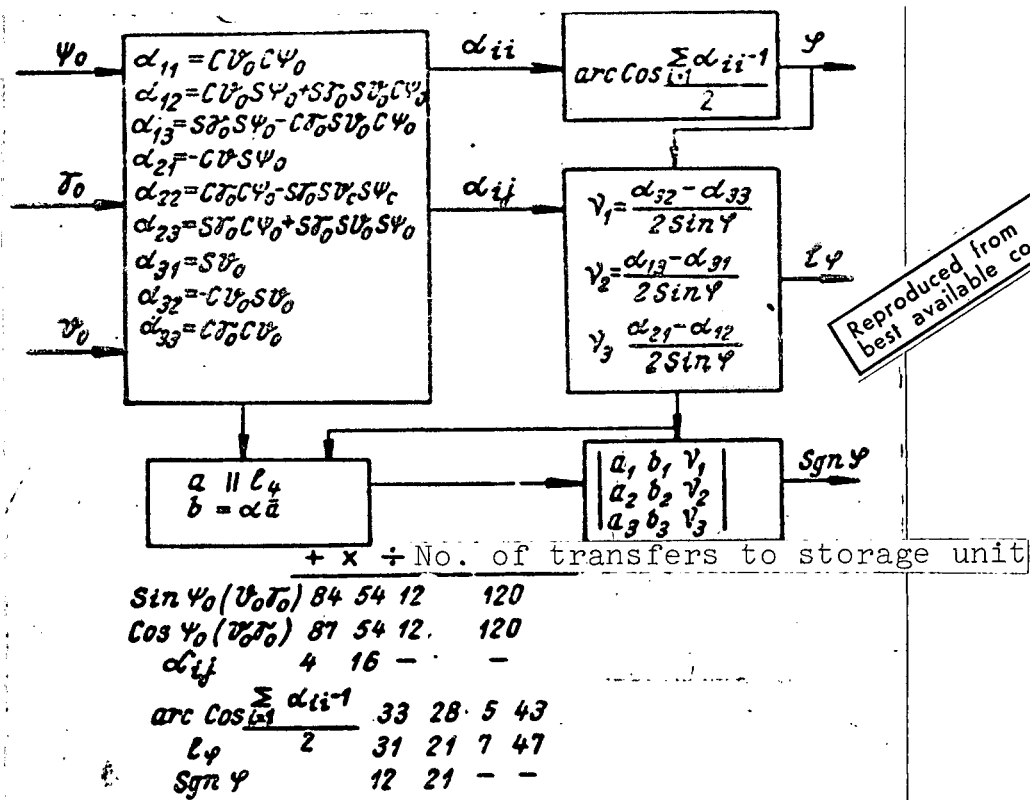 Ψ₀
α₁₁ = Cϑ₀CΨ₀
α₁₂ = Cϑ₀SΨ₀+Sγ₀Sϑ₀CΨ₀
α₁₃ = Sγ₀SΨ₀-Cγ₀Sϑ₀CΨ₀
α₂₁ = -CϑSΨ₀
γ₀
α₂₂ = Cγ₀CΨ₀-Sγ₀Sϑ_cSΨ_c
α₂₃ = Sγ₀CΨ₀+Sγ₀Sϑ₀SΨ₀
α₃₁ = Sϑ₀
α₃₂ = -Cϑ₀Sϑ₀
ϑ₀
α₃₃ = Cγ₀Cϑ₀
αii
arc Cos (Σ i=1 αii-1) / 2
φ
αij
ν₁ = (α₃₂ - α₃₃) / 2 Sin φ
ν₂ = (α₁₃ - α₃₁) / 2 Sin φ
ν₃ (α₂₁ - α₁₂) / 2 Sin φ
ℓφ
Reproduced from
best available co
a || ℓ₄
b = αā
a₁ b₁ ν₁
a₂ b₂ ν₂
a₃ b₃ ν₃
Sgn φ
+ × ÷ No. of transfers to storage unit
Sin Ψ₀(ϑ₀γ₀) 84 54 12 120
Cos Ψ₀(ϑ₀γ₀) 87 54 12. 120
αij 4 16 - -
arc Cos (Σ i=1 αii-1) / 2 33 28 5 43
ℓφ 31 21 7 47
Sgn φ 12 21 - -